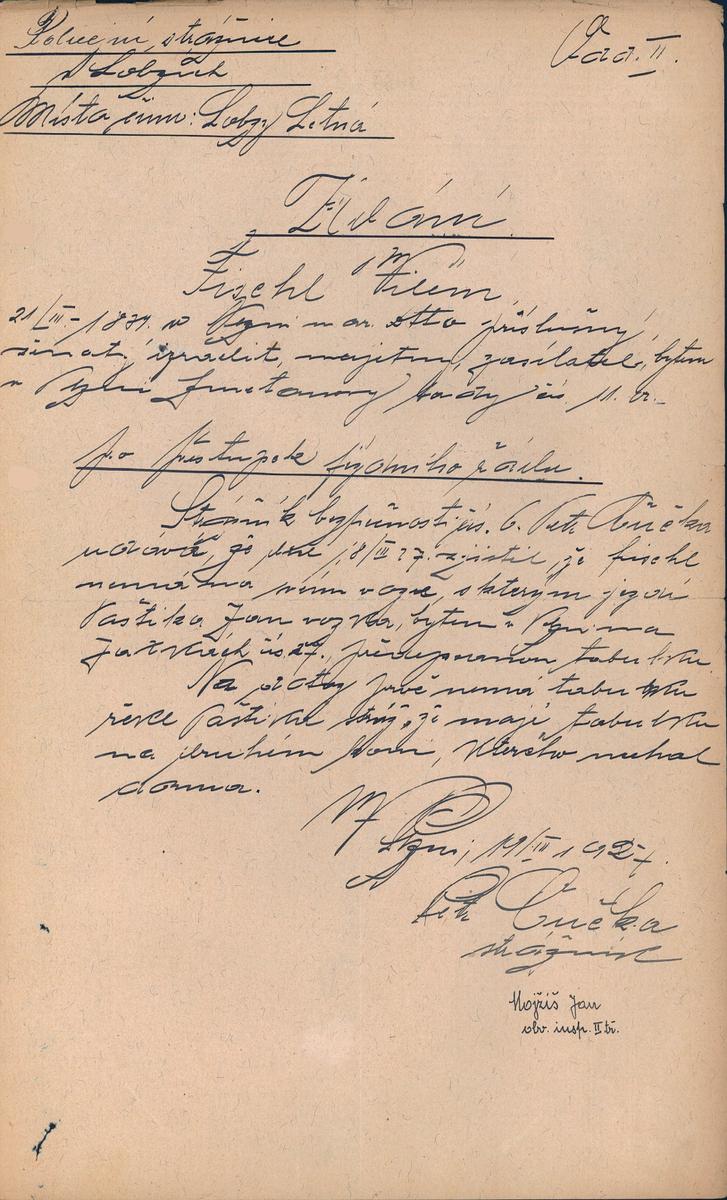 Policejní strážnice
v Lobzích
Místa činu: Lobzy Letná
Odd. II.
Udání
Fischl Vilém,
21/III. 18 v Plzni nar. příslušný
ženat, izraelit, majetný, zasílatel, bytem
v Plzni Smetanovy sady čís. 11. 
pro přestupek jízdního řádu.
Strážník bezpečnosti čís. 6. Petr Čučka
udává, že dne 18/III 27. zjistil, že Fischl
nemá na svém voze, s kterým jezdí
Vaštika Jan vozka, bytem v Plzni na
čís. 27., předepsanou tabulku.
Na dotaz proč nemá tabulku
řekl Vaštika stráži, že mají tabulku
na druhém voze, kterého nechal
doma.
V Plzni, 19/III 1927.
Petr Čučka
strážník
Mojžíš Jan
obv. insp. II tř.